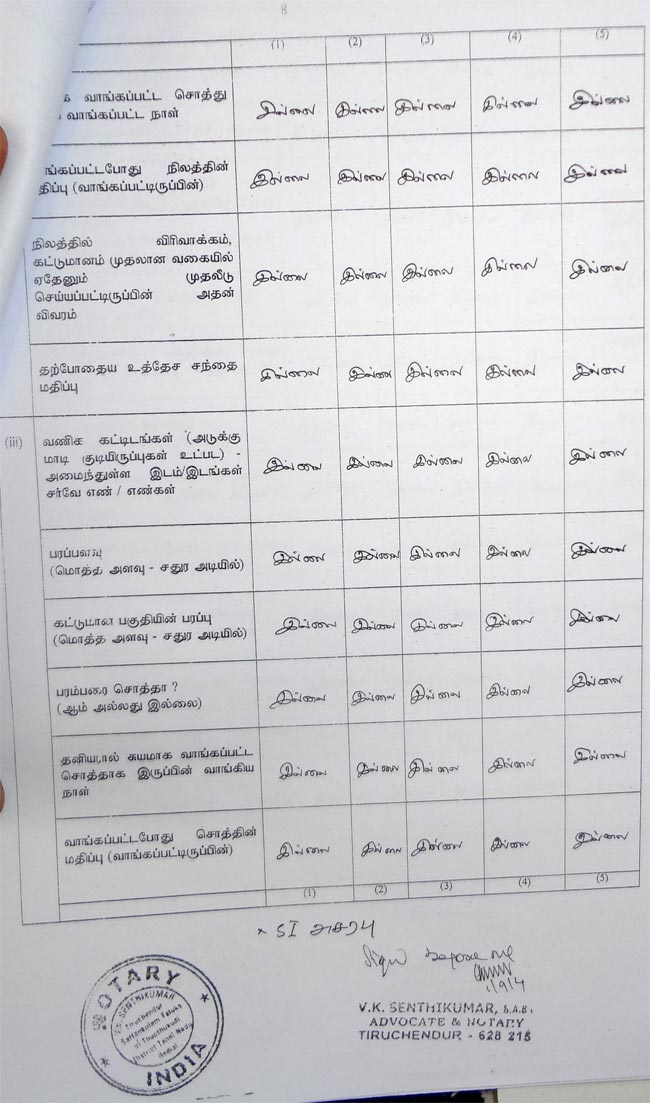 8
(1) (2) (3) (4) (5)
வாங்கப்பட்ட சொத்து
வாங்கப்பட்ட நாள்
இல்லை இல்லை இல்லை இல்லை இல்லை
ங்கப்பட்டபோது நிலத்தின்
திப்பு (வாங்கப்பட்டிருப்பின்)
இல்லை இல்லை இல்லை இல்லை இல்லை
நிலத்தில் விரிவாக்கம்,
கட்டுமானம் முதலான வகையில்
ஏதேனும் முதலீடு
செய்யப்பட்டிருப்பின் அதன்
விவரம்
இல்லை இல்லை இல்லை இல்லை இல்லை
தற்போதைய உத்தேச சந்தை
மதிப்பு
இல்லை இல்லை இல்லை இல்லை இல்லை
(iii) வணிக கட்டிடங்கள் (அடுக்கு
மாடி குடியிருப்புகள் உட்பட) -
அமைந்துள்ள இடம்/இடங்கள்
சர்வே எண் / எண்கள்
இல்லை இல்லை இல்லை இல்லை இல்லை
பரப்பளவு
(மொத்த அளவு - சதுர அடியில்)
இல்லை இல்லை இல்லை இல்லை இல்லை
கட்டுமான பகுதியின் பரப்பு
(மொத்த அளவு - சதுர அடியில்)
இல்லை இல்லை இல்லை இல்லை இல்லை
பரம்பரை சொத்தா ?
(ஆம் அல்லது இல்லை)
இல்லை இல்லை இல்லை இல்லை இல்லை
தனியரால் சுயமாக வாங்கப்பட்ட
சொத்தாக இருப்பின் வாங்கிய
நாள்
இல்லை இல்லை இல்லை இல்லை இல்லை
வாங்கப்பட்டபோது சொத்தின்
மதிப்பு (வாங்கப்பட்டிருப்பின்)
இல்லை இல்லை இல்லை இல்லை இல்லை
(1) (2) (3) (4) (5)
before me
V.K. SENTHIKUMAR, B.A.B.L
ADVOCATE & NOTARY
TIRUCHENDUR - 628 215
NOTARY
V.K. SENTHIKUMAR
Tiruchendur
Sattankulam Taluks
of Tiructhukudi
District Tamil Nadu
(India)
INDIA